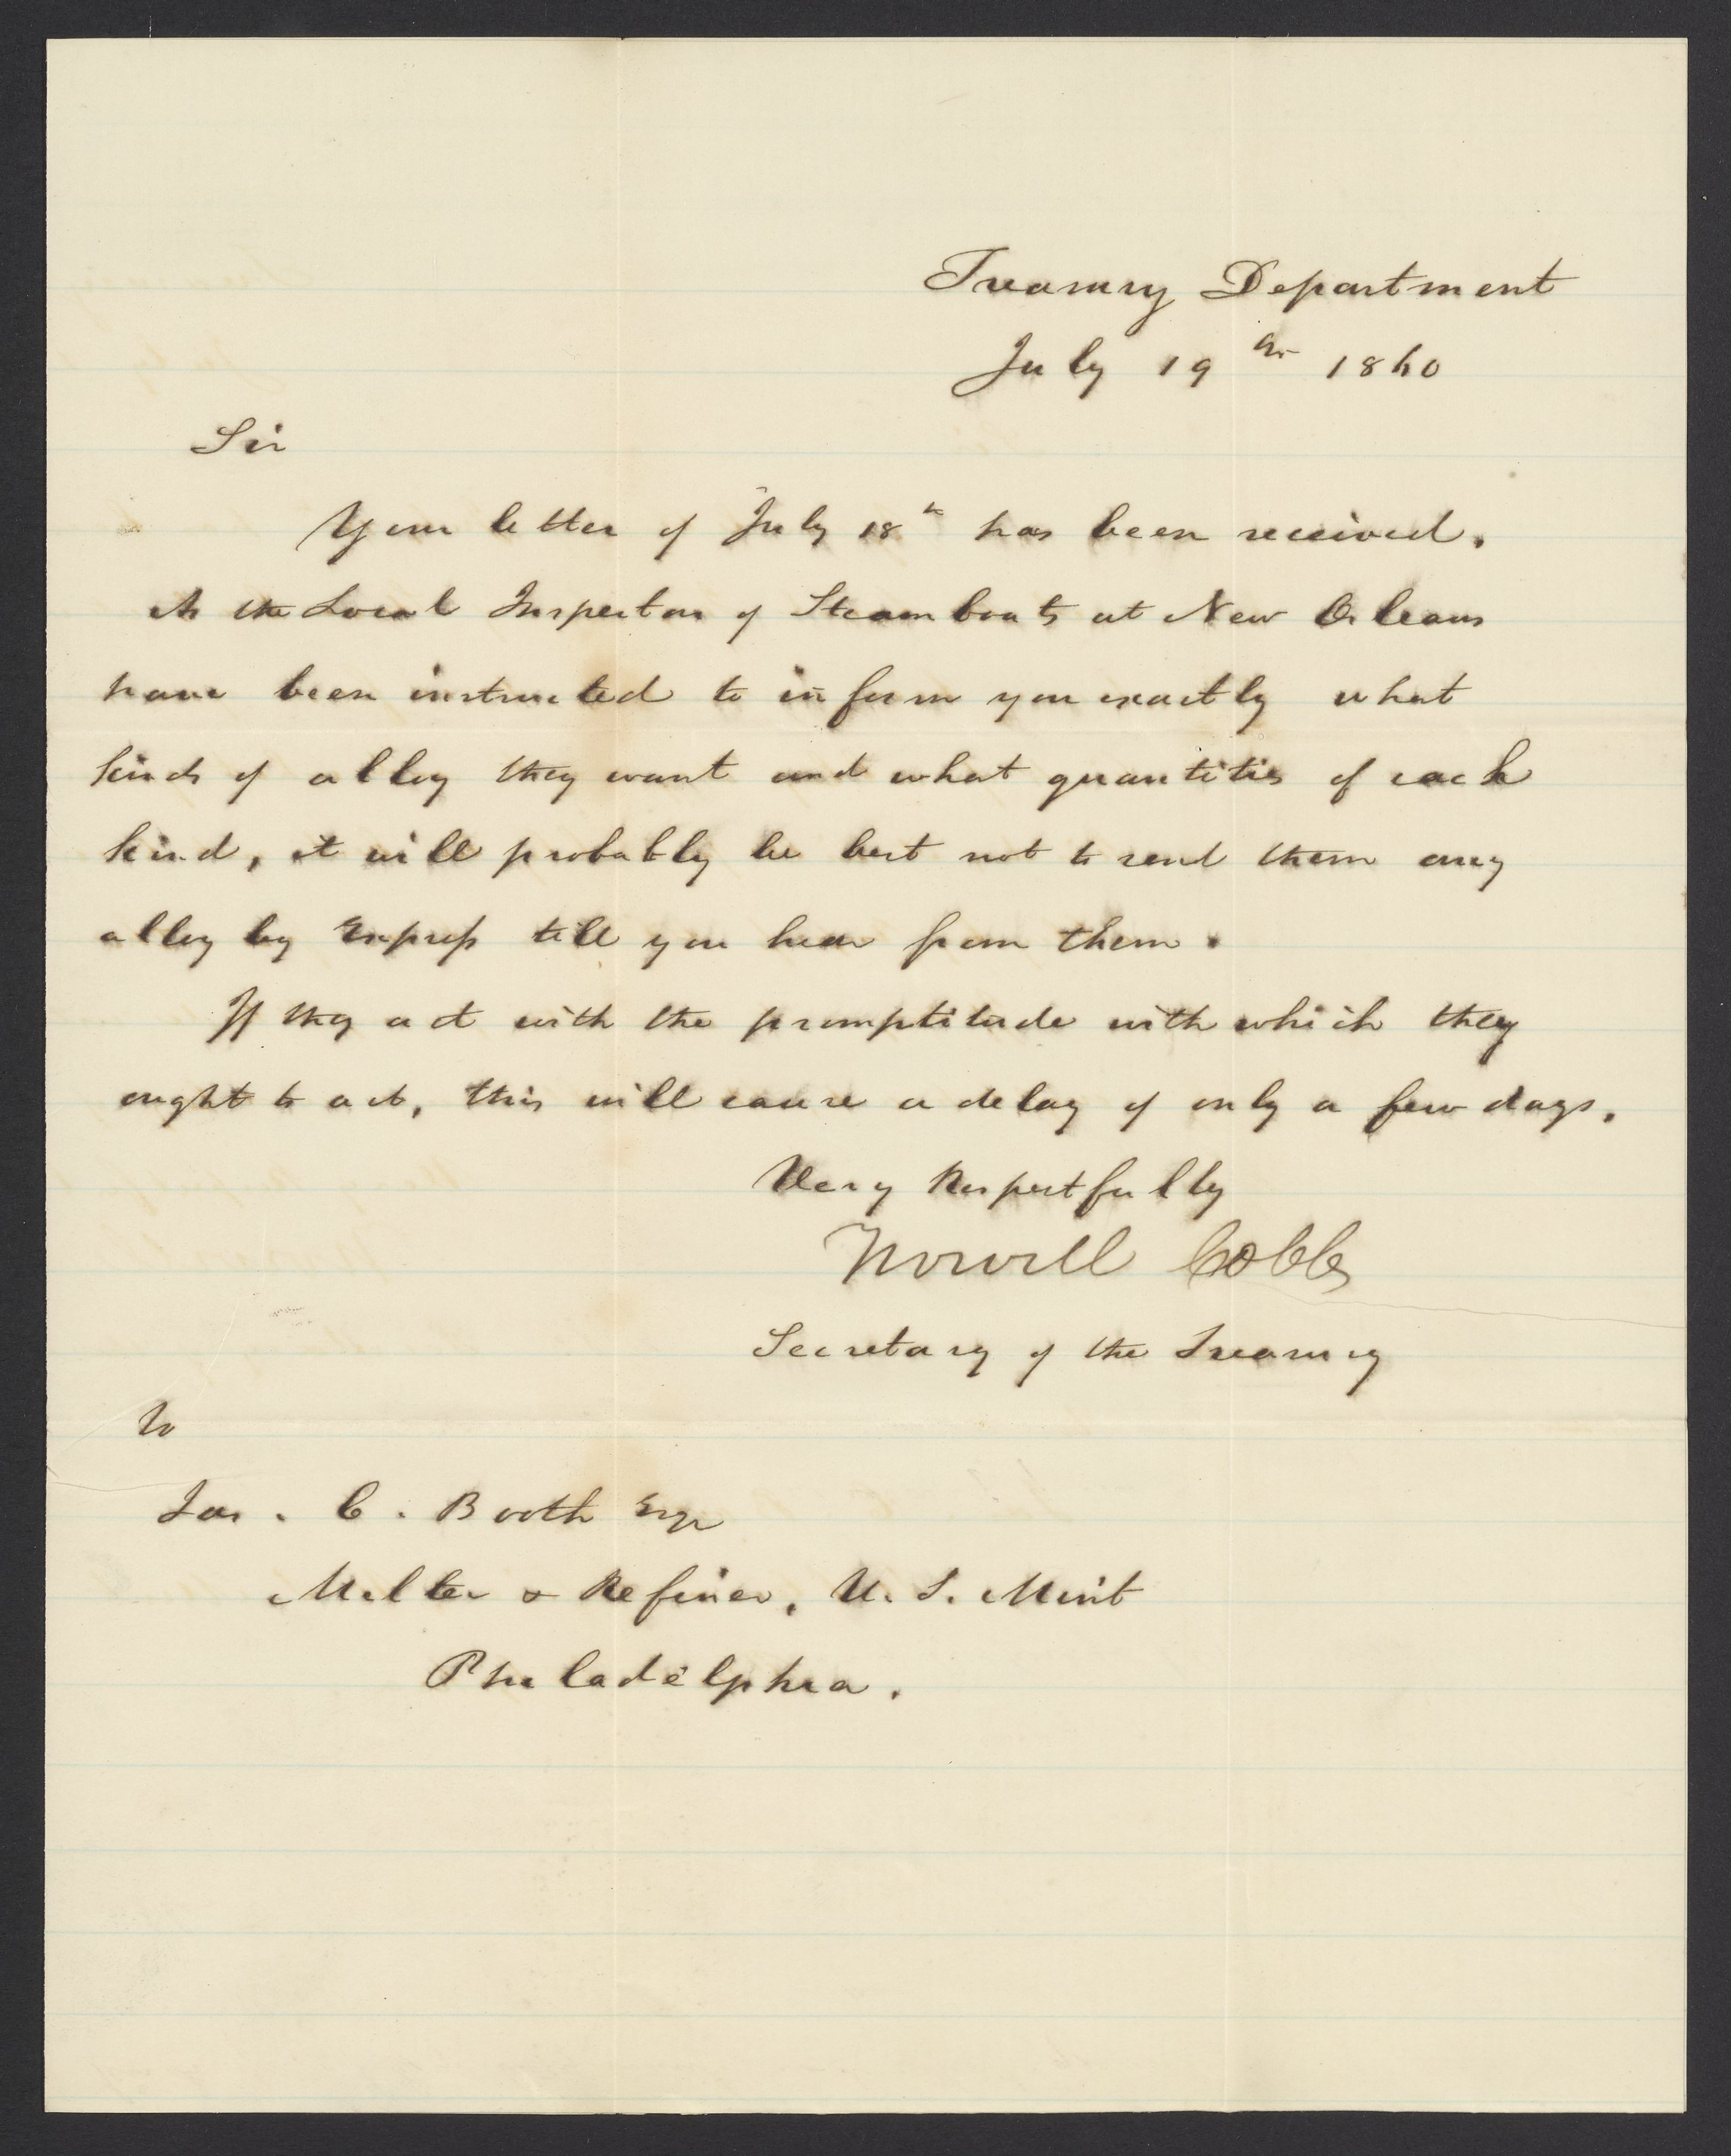 Treasury Department
July 19th 1860
Sir
Your letter of July 18th has been received.
As the Local Inspectors of Steamboats at New Orleans
have been instructed to inform you exactly what
kinds of alloy they want and what quantities of each
kind, it will probably be best not to send them any
alloy by Express till you hear from them.
If they act with the promptitude with which they
ought to act, this will cause a delay of only a few days.
Very Respectfully
Howell Cobb
Secretary of the Treasury
To
Jas. C. Booth Esqr
Melter & Refiner, U. S. Mint
Philadelphia.